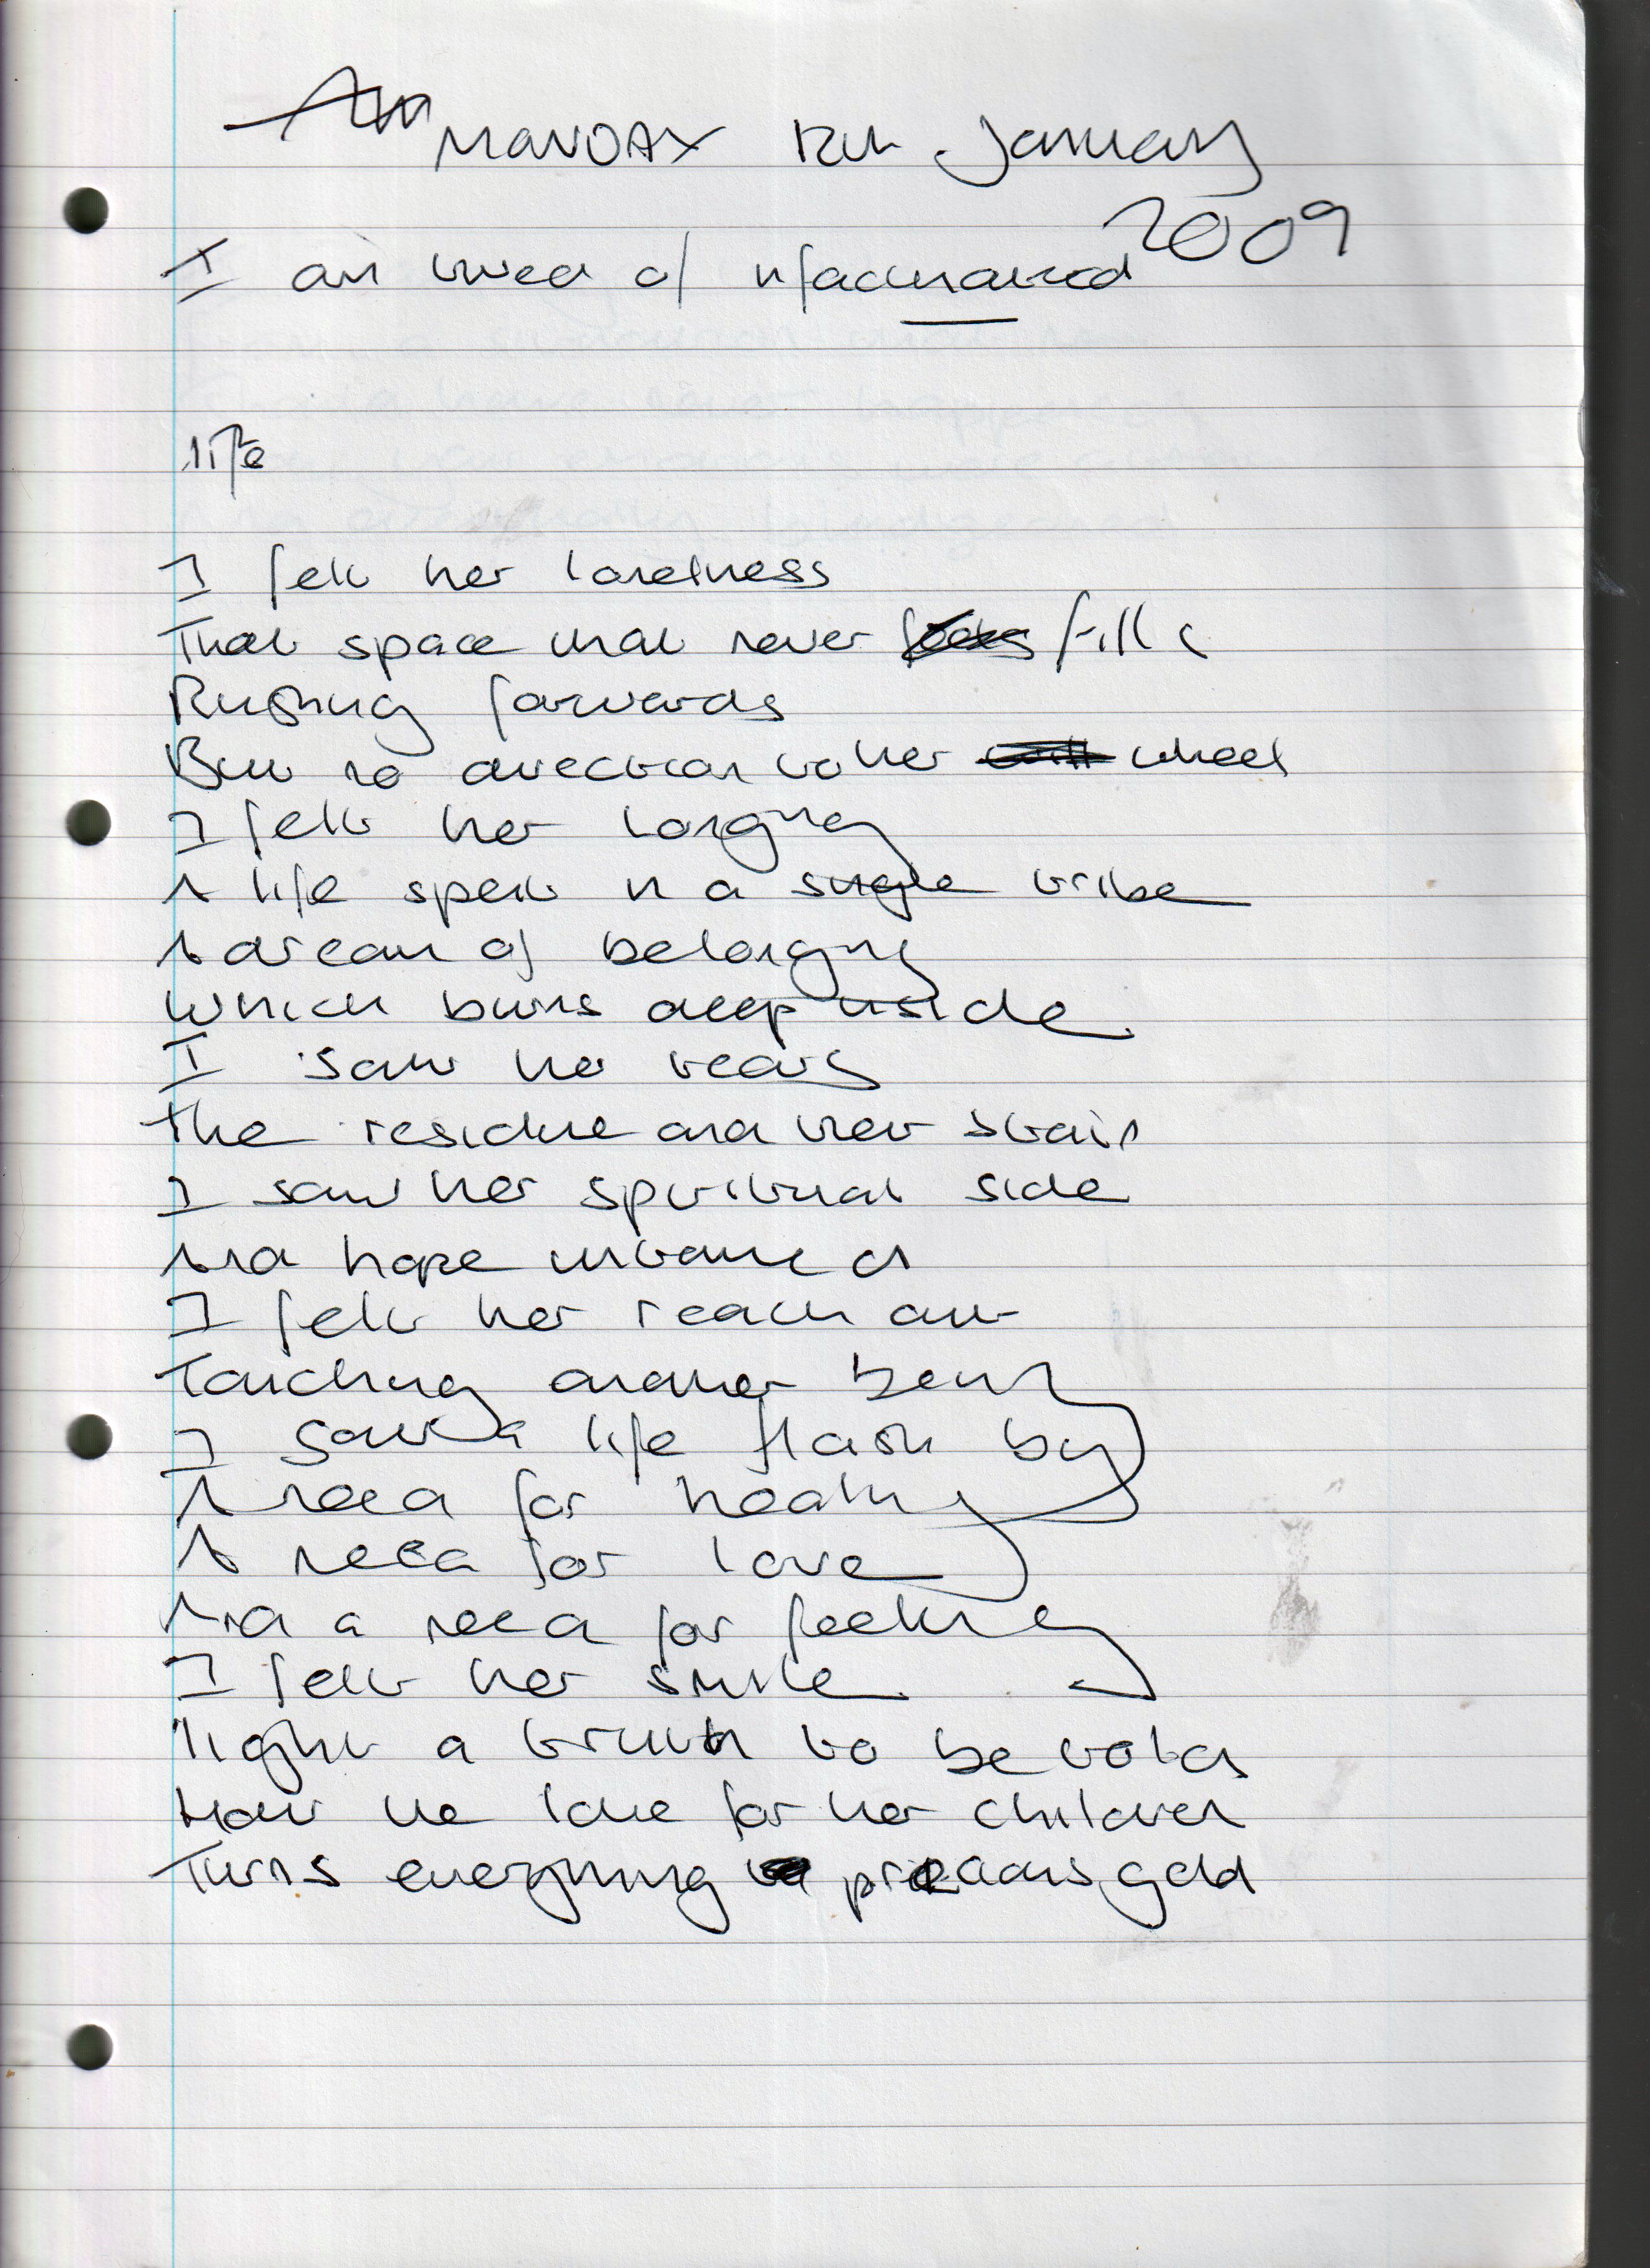 MONDAY 12th January
2009
I am tired of
life
I felt her loneliness
That space that never fills
Rushing forwards
But no direction to her wheel
I felt her longing
A life spent in a single tribe
A dream of belonging
Which burns deep inside
I saw her tears
The residue and their stain
I saw her spiritual side
And hope
I felt her reach out
Touching another being
I saw a life flash by
A need for healing
A need for love
And a need for feeling
I felt her smile
light a truth to be told
How the love for her children
Turns everything to precious gold